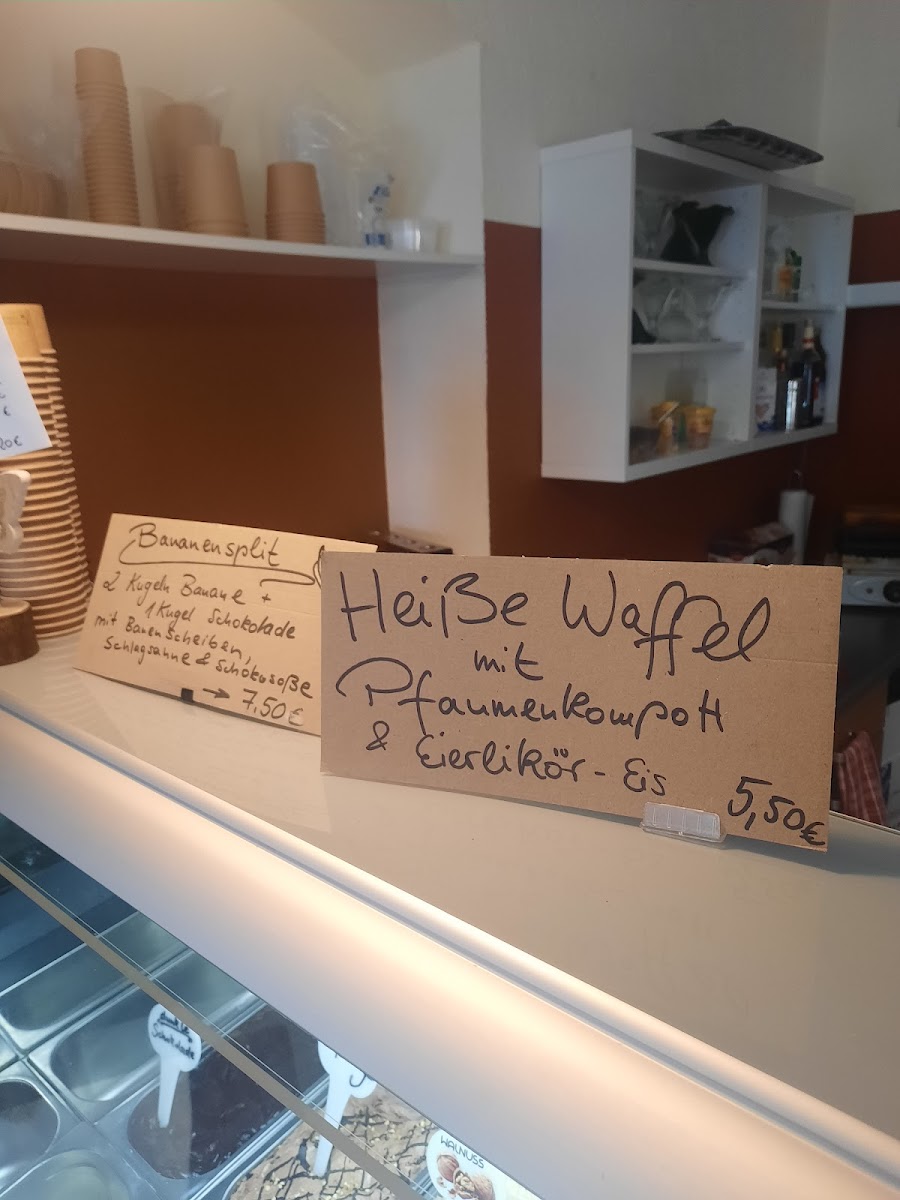 20€
Bananensplit
2 Kugeln Banane +
1 Kugel Schokolade
mit Banenscheiben,
Schlagsahne & Schokosoße
→ 7,50€
Heiße Waffel
mit
Pflaumenkompott
& Eierlikör-Eis
5,50€
Schokolade
WALNUSS